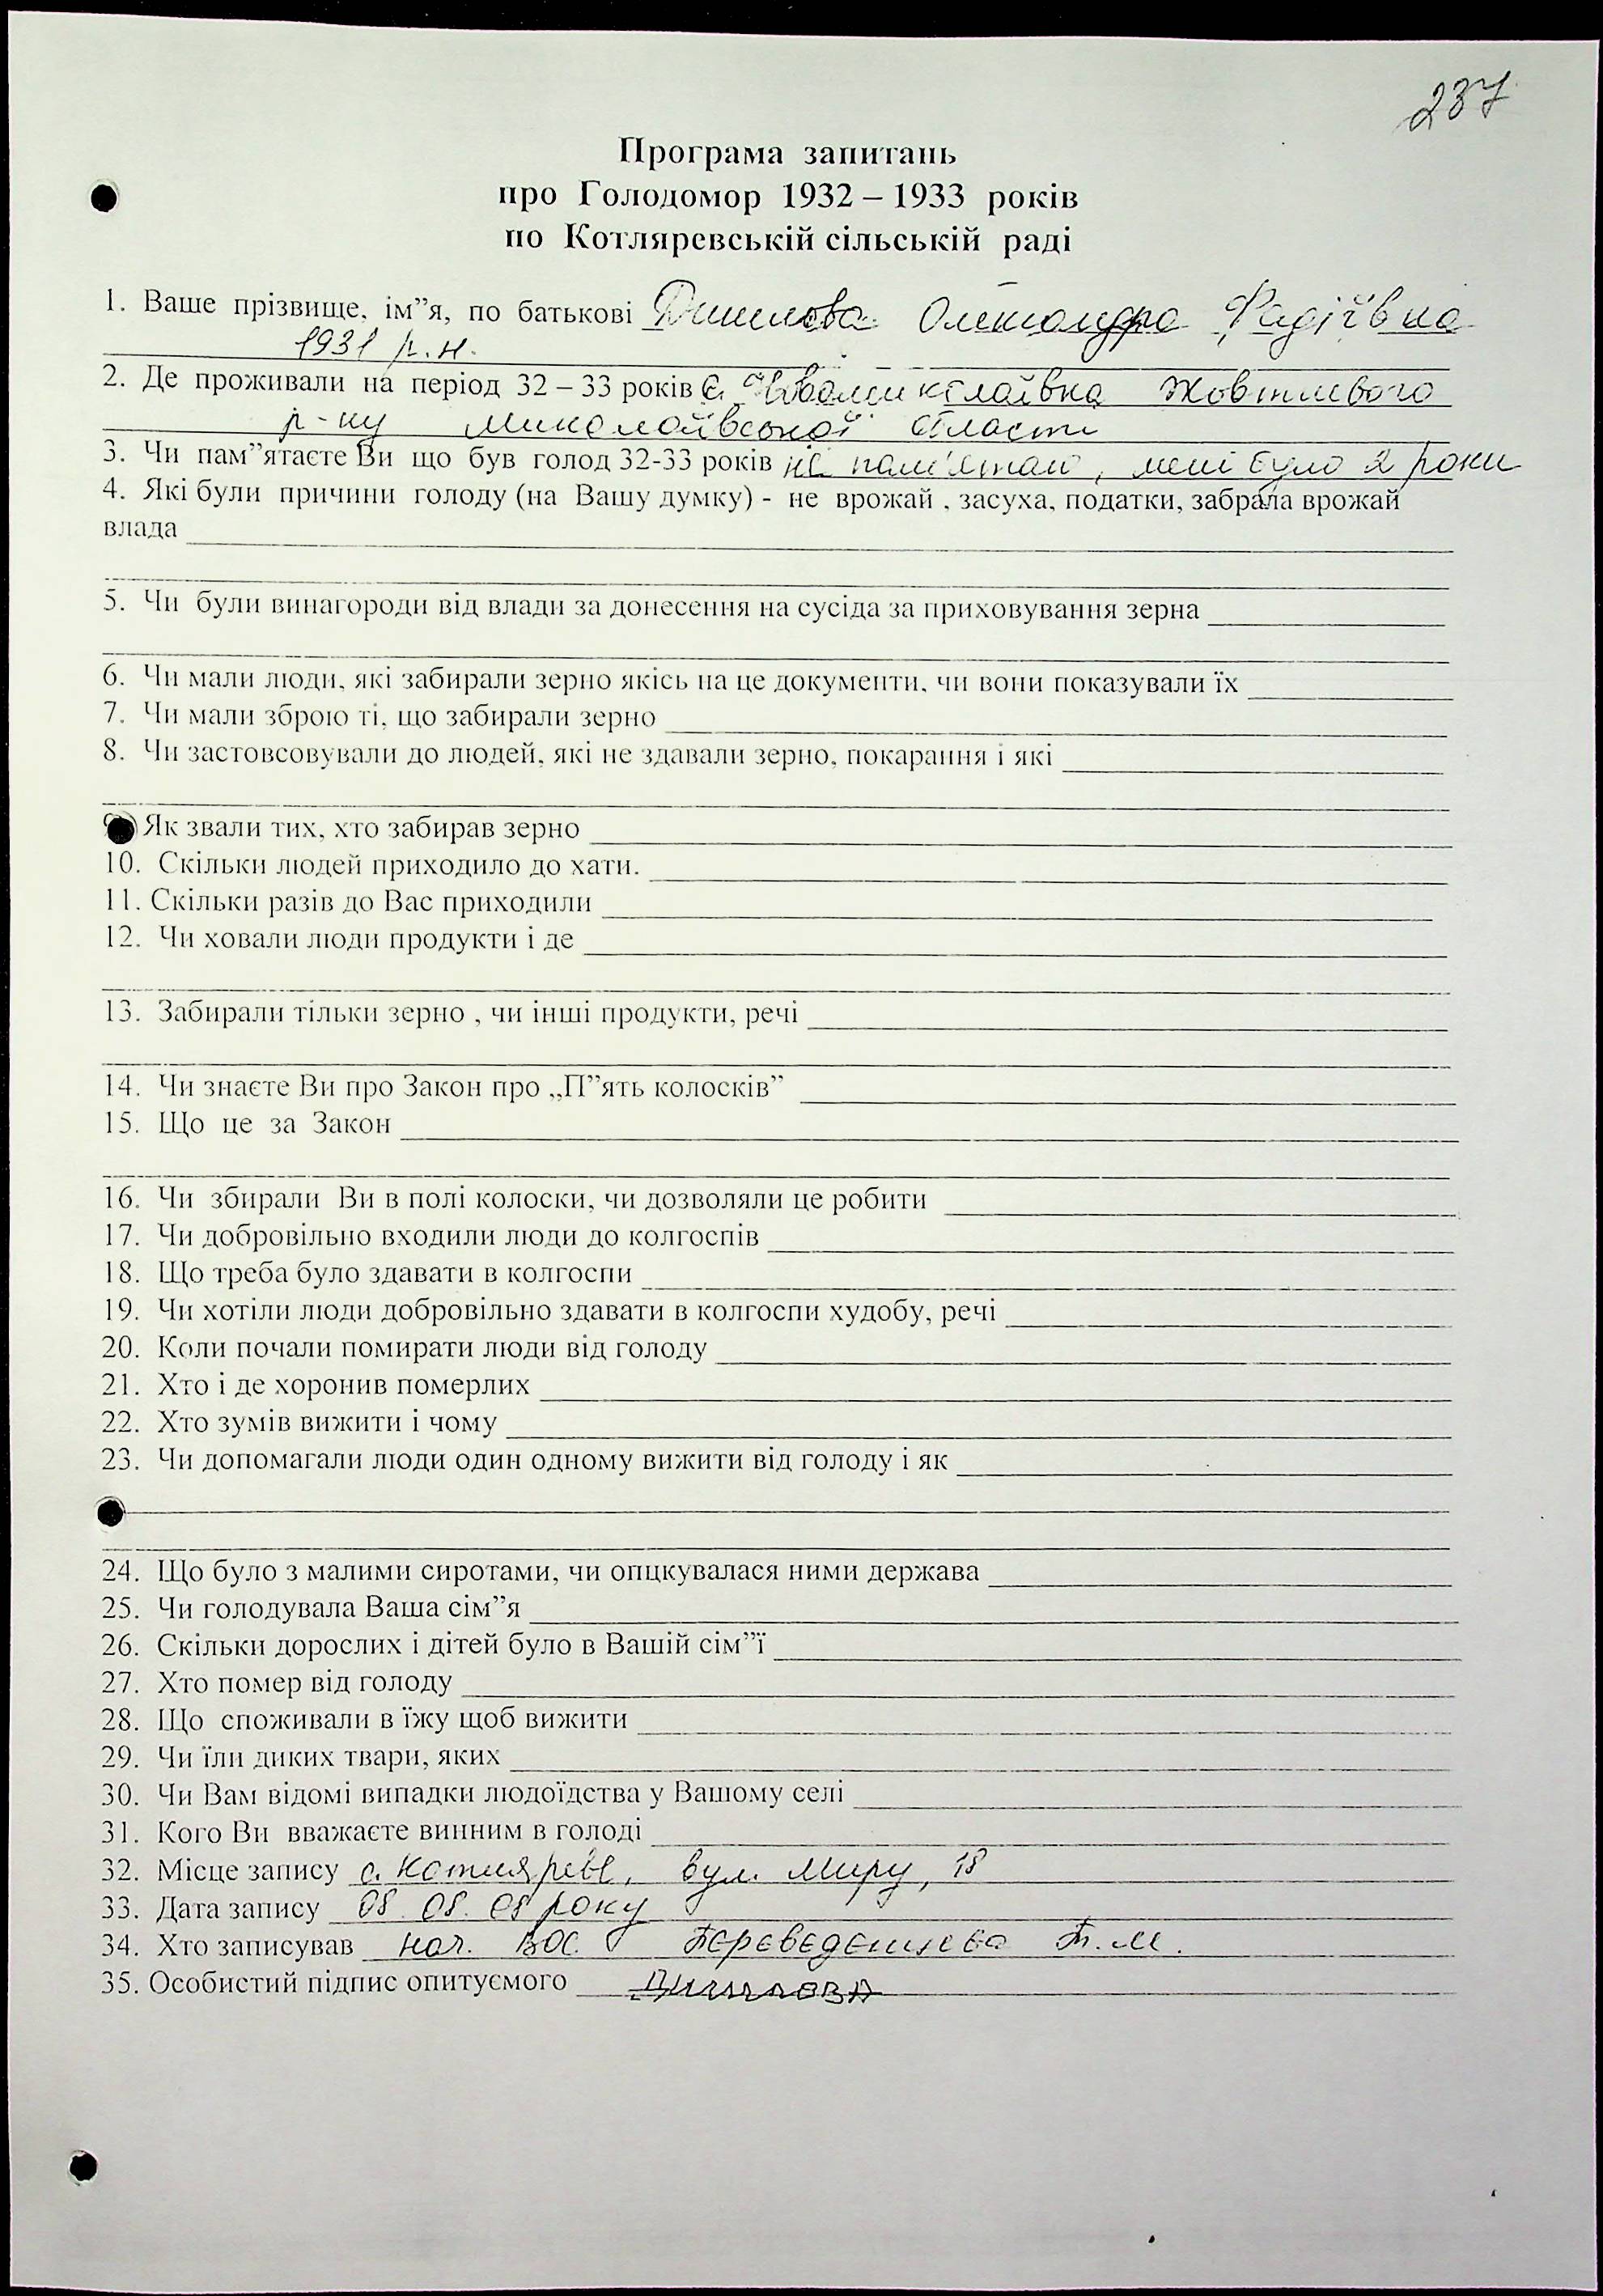 237
Програма запитань
про Голодомор 1932 – 1933 років
по Котляревській сільській раді
1. Ваше прізвище, ім"я, по батькові Олександра Фадіївна
1931 р.н.
2. Де проживали на період 32 – 33 років с. Жовтневого
р-ну Миколаївської області
3. Чи пам"ятаєте Ви що був голод 32-33 років не пам'ятаю, мені було 2 роки
4. Які були причини голоду (на Вашу думку) - не врожай , засуха, податки, забрала врожай
влада
5. Чи були винагороди від влади за донесення на сусіда за приховування зерна
6. Чи мали люди, які забирали зерно якісь на це документи, чи вони показували їх
7. Чи мали зброю ті, що забирали зерно
8. Чи застовсовували до людей, які не здавали зерно, покарання і які
Як звали тих, хто забирав зерно
10. Скільки людей приходило до хати.
11. Скільки разів до Вас приходили
12. Чи ховали люди продукти і де
13. Забирали тільки зерно , чи інші продукти, речі
14. Чи знаєте Ви про Закон про „П"ять колосків"
15. Що це за Закон
16. Чи збирали Ви в полі колоски, чи дозволяли це робити
17. Чи добровільно входили люди до колгоспів
18. Що треба було здавати в колгоспи
19. Чи хотіли люди добровільно здавати в колгоспи худобу, речі
20. Коли почали помирати люди від голоду
21. Хто і де хоронив померлих
22. Хто зумів вижити і чому
23. Чи допомагали люди один одному вижити від голоду і як
24. Що було з малими сиротами, чи опцкувалася ними держава
25. Чи голодувала Ваша сім"я
26. Скільки дорослих і дітей було в Вашій сім"ї
27. Хто помер від голоду
28. Що споживали в їжу щоб вижити
29. Чи їли диких твари, яких
30. Чи Вам відомі випадки людоїдства у Вашому селі
31. Кого Ви вважаєте винним в голоді
32. Місце запису с. Котляреве, вул. Миру, 18
33. Дата запису 08. 08. 08 року
34. Хто записував нач. ВОС Переведенцева Т.М.
35. Особистий підпис опитуємого